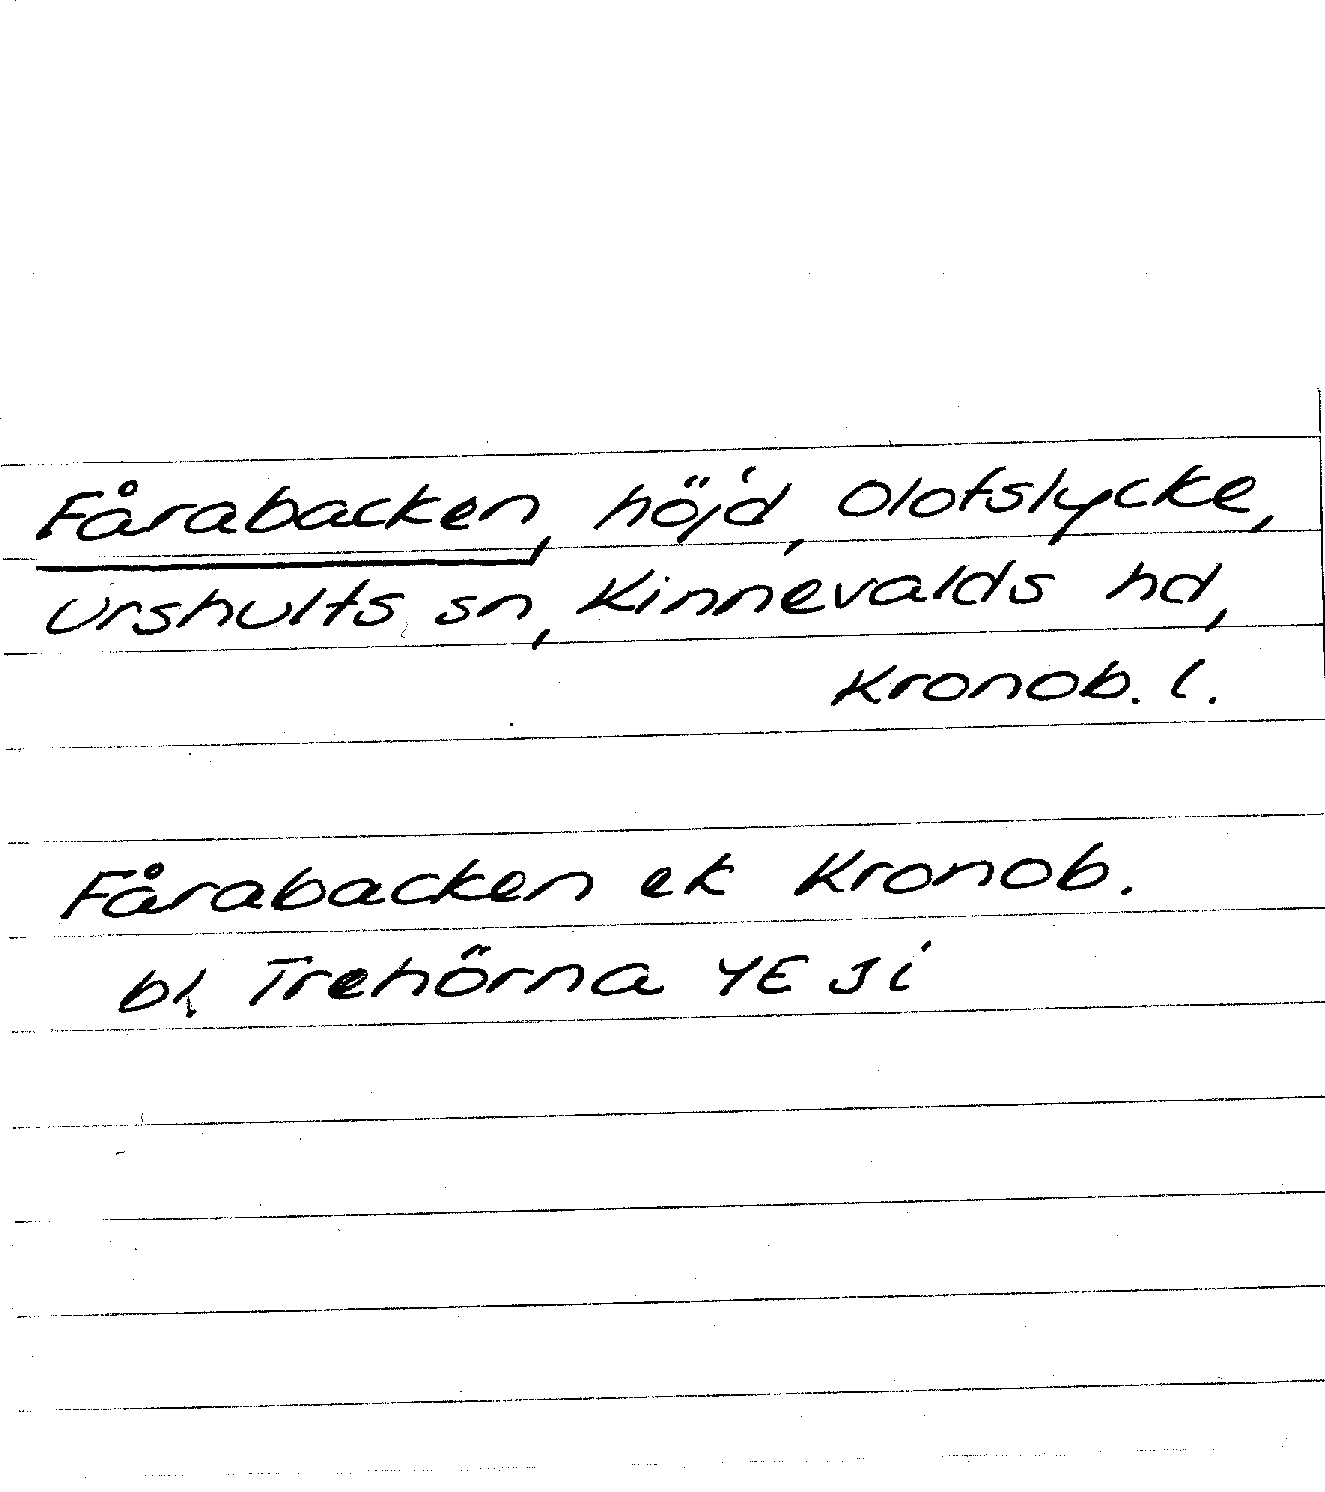 Fårabacken, höjd, Olofslycke,
Urshults sn, Kinnevalds hd,
Kronob. l.
Fårabacken ek Kronob.
bl. Trehörna 4E Ji